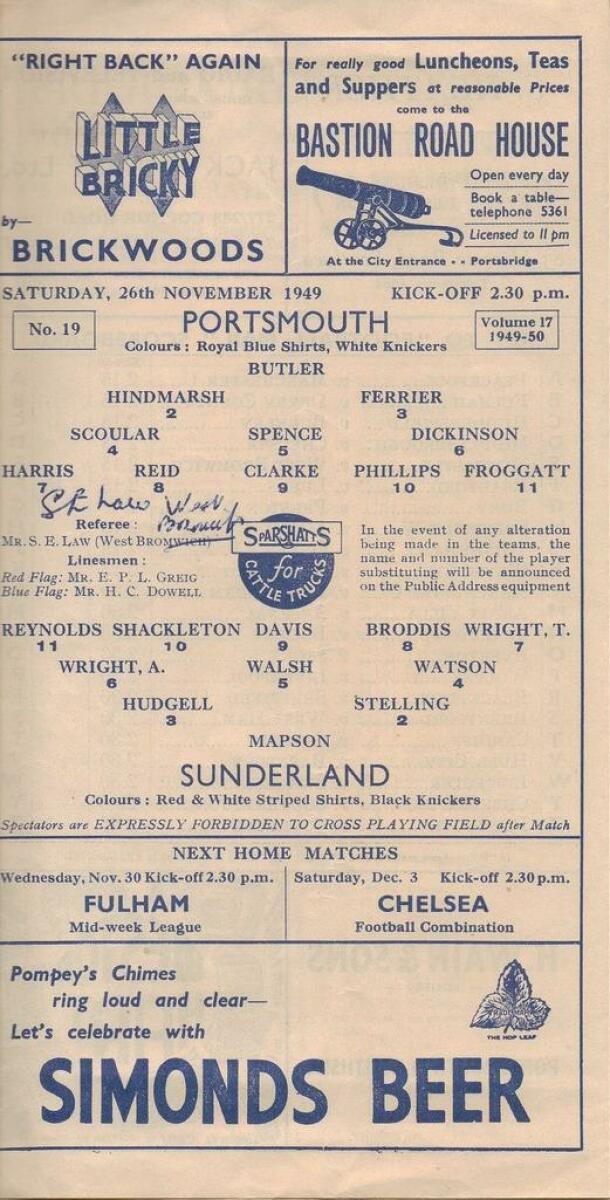 "RIGHT BACK" AGAIN
LITTLE
BRICKY
by—
BRICKWOODS
For really good Luncheons, Teas
and Suppers at reasonable Prices
come to the
BASTION ROAD HOUSE
Open every day
Book a table—
telephone 5361
Licensed to 11 pm
At the City Entrance - - Portsbridge
SATURDAY, 26th NOVEMBER 1949 KICK-OFF 2.30 p.m.
No. 19
PORTSMOUTH
Volume 17
1949-50
Colours : Royal Blue Shirts, White Knickers
BUTLER
HINDMARSH FERRIER
2 3
SCOULAR SPENCE DICKINSON
4 5 6
HARRIS REID CLARKE PHILLIPS FROGGATT
7 8 9 10 11
S E Law West
Bromwich
Referee :
MR. S. E. LAW (West BROMWICH)
Linesmen :
Red Flag: MR. E. P. L. GREIG
Blue Flag: MR. H. C. DOWELL
SPARSHATTS
for
CATTLE TRUCKS
In the event of any alteration
being made in the teams, the
name and number of the player
substituting will be announced
on the Public Address equipment
REYNOLDS SHACKLETON DAVIS BRODDIS WRIGHT, T.
11 10 9 8 7
WRIGHT, A. WALSH WATSON
6 5 4
HUDGELL STELLING
3 2
MAPSON
SUNDERLAND
Colours : Red & White Striped Shirts, Black Knickers
Spectators are EXPRESSLY FORBIDDEN TO CROSS PLAYING FIELD after Match
NEXT HOME MATCHES
Wednesday, Nov. 30 Kick-off 2.30 p.m.
FULHAM
Mid-week League
Saturday, Dec. 3 Kick-off 2.30 p.m.
CHELSEA
Football Combination
Pompey's Chimes
ring loud and clear—
Let's celebrate with
TRADE MARK
THE HOP LEAF
SIMONDS BEER